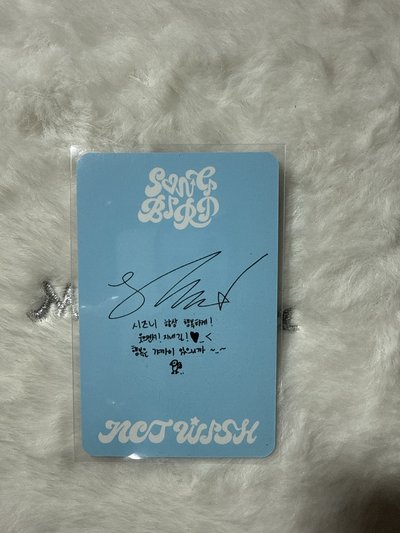 SONG
BIRD
시즈니 항상 행복하게!
지내길!♥_<
행복은 가까이 있으니까 ~_~
NCT WISH